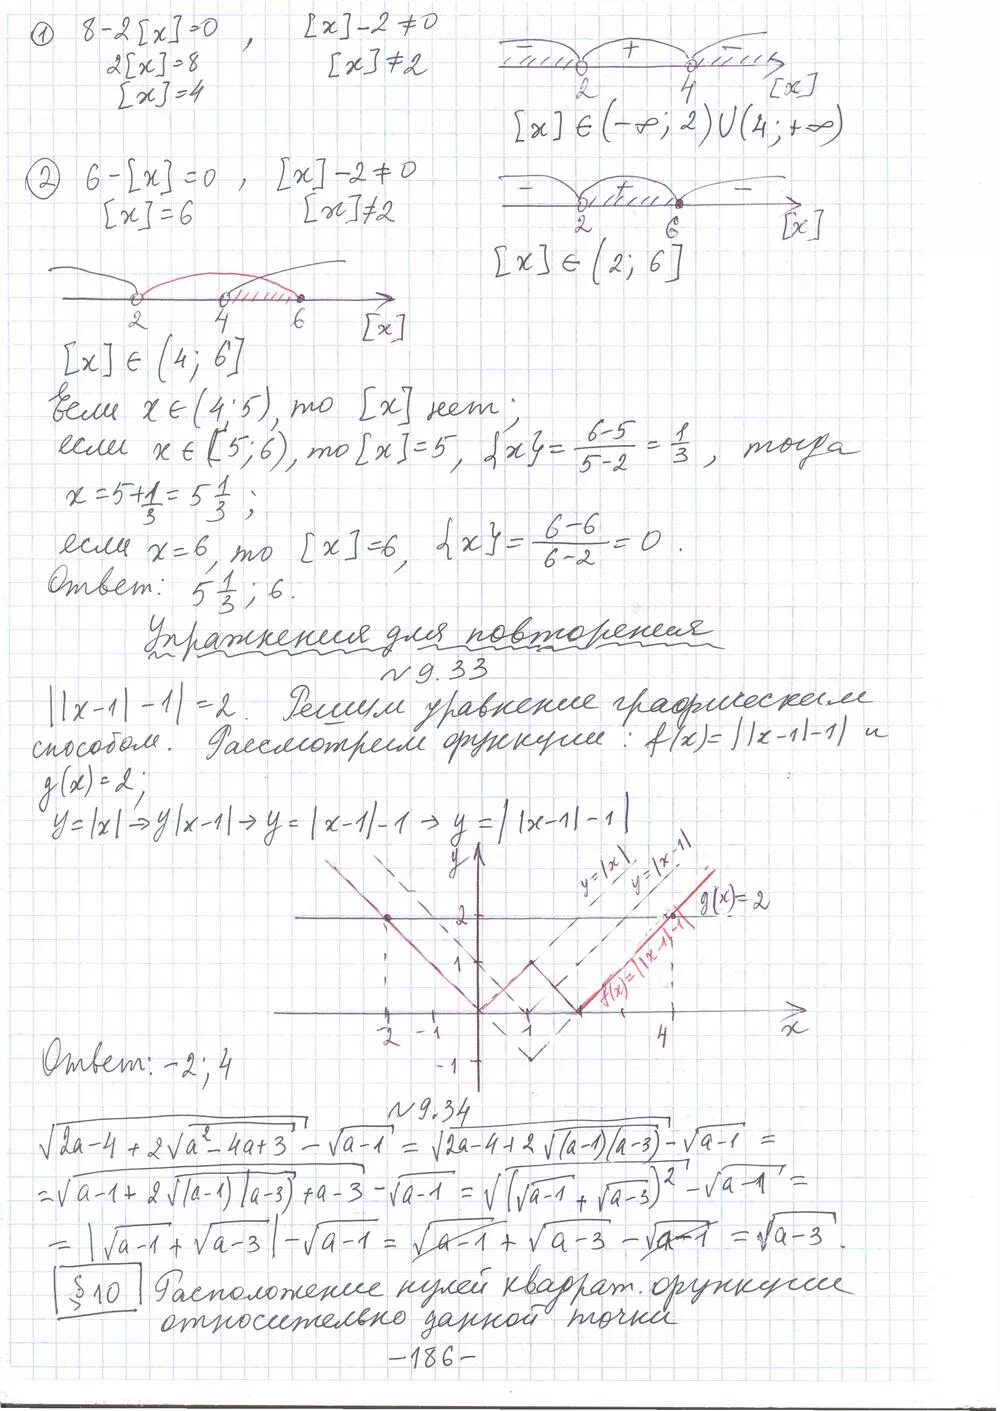 ① 8-2[x]=0 , [x]-2≠0
2[x]=8 [x]≠2
[x]=4
- + -
2 4 [x]
[x]∈(-∞; 2)∪(4;+∞)
② 6-[x]=0 , [x]-2≠0
[x]=6 [x]≠2
- + -
2 6 [x]
[x]∈(2; 6]
2 4 6 [x]
[x]∈(4; 6]
Если x∈(4;5), то [x] нет;
если x∈[5;6), то [x]=5, {x}=(6-5)/(5-2)=1/3, тогда
x=5+1/3=5 1/3;
если x=6, то [x]=6, {x}=(6-6)/(6-2)=0.
Ответ: 5 1/3; 6.
Упражнения для повторения
№9.33
||x-1|-1|=2. Решим уравнение графическим
способом. Рассмотрим функции: f(x)=||x-1|-1| и
g(x)=2;
y=|x|→y|x-1|→y=|x-1|-1→y=||x-1|-1|
y
y=|x|
y=|x-1|
g(x)=2
f(x)=||x-1|-1|
2
1
-2 -1 1 4 x
-1
Ответ: -2; 4
№9.34
√(2a-4+2√(a²-4a+3))-√(a-1)=√(2a-4+2√((a-1)(a-3)))-√(a-1)=
=√(a-1+2√((a-1)(a-3))+a-3)-√(a-1)=√((√(a-1)+√(a-3))²)-√(a-1)=
=|√(a-1)+√(a-3)|-√(a-1)=√(a-1)+√(a-3)-√(a-1)=√(a-3).
§10 Расположение нулей квадрат. функции
относительно данной точки
-186-